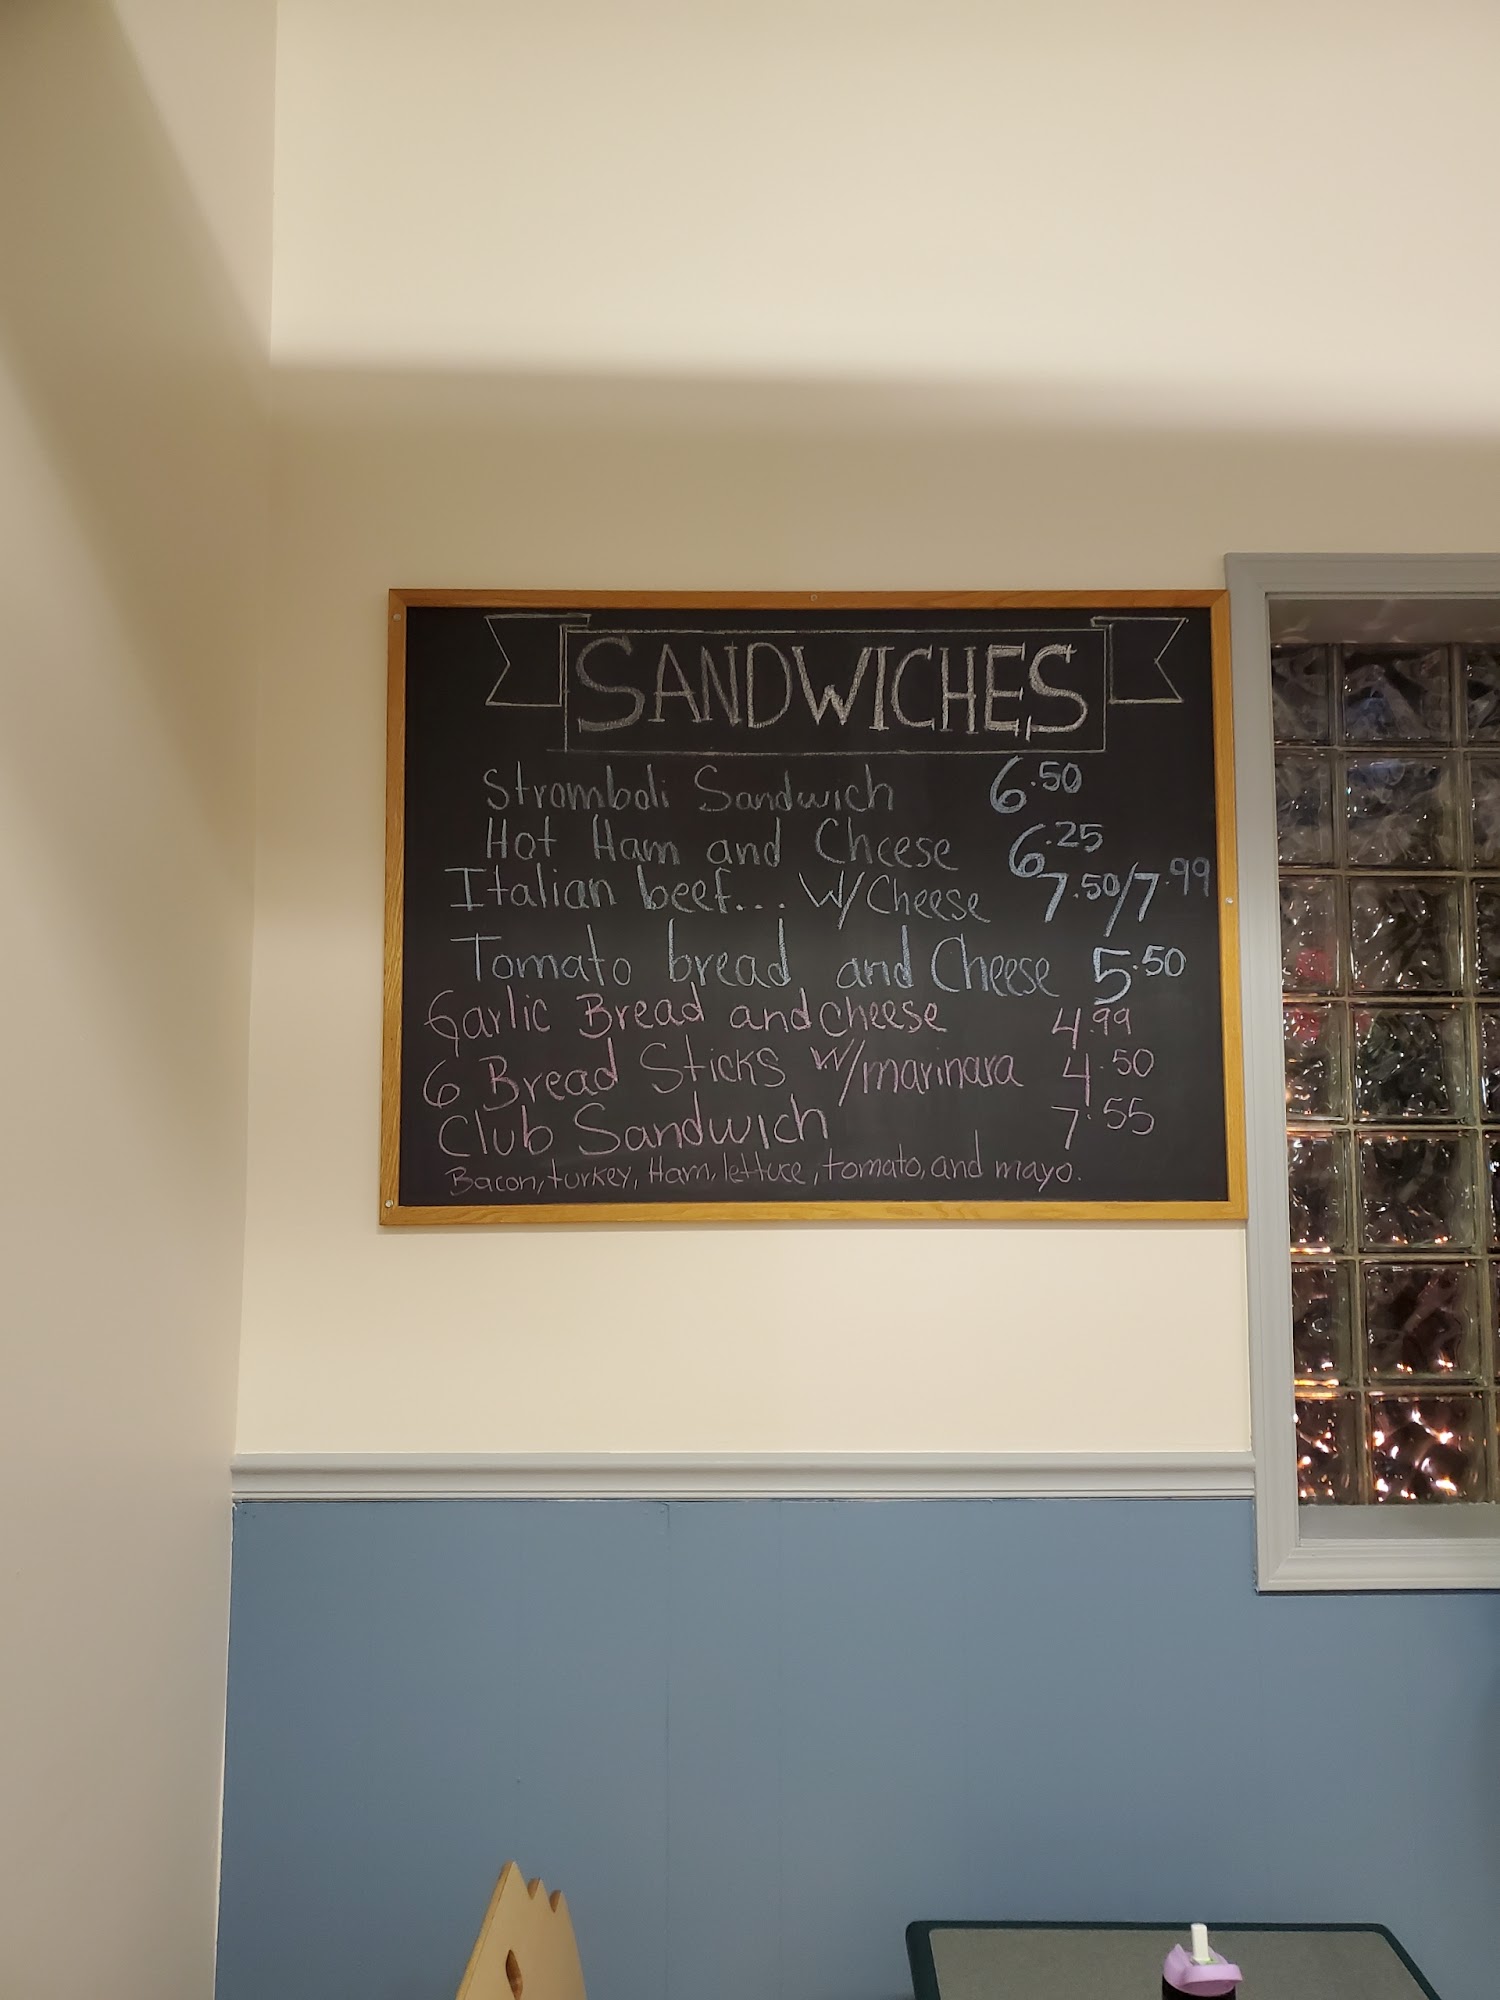 SANDWICHES
Stromboli Sandwich 6.50
Hot Ham and Cheese 6.25
Italian beef... W/Cheese 7.50/7.99
Tomato bread and Cheese 5.50
Garlic Bread and cheese 4.99
6 Bread Sticks w/marinara 4.50
Club Sandwich 7.55
Bacon, turkey, Ham, lettuce, tomato, and mayo.